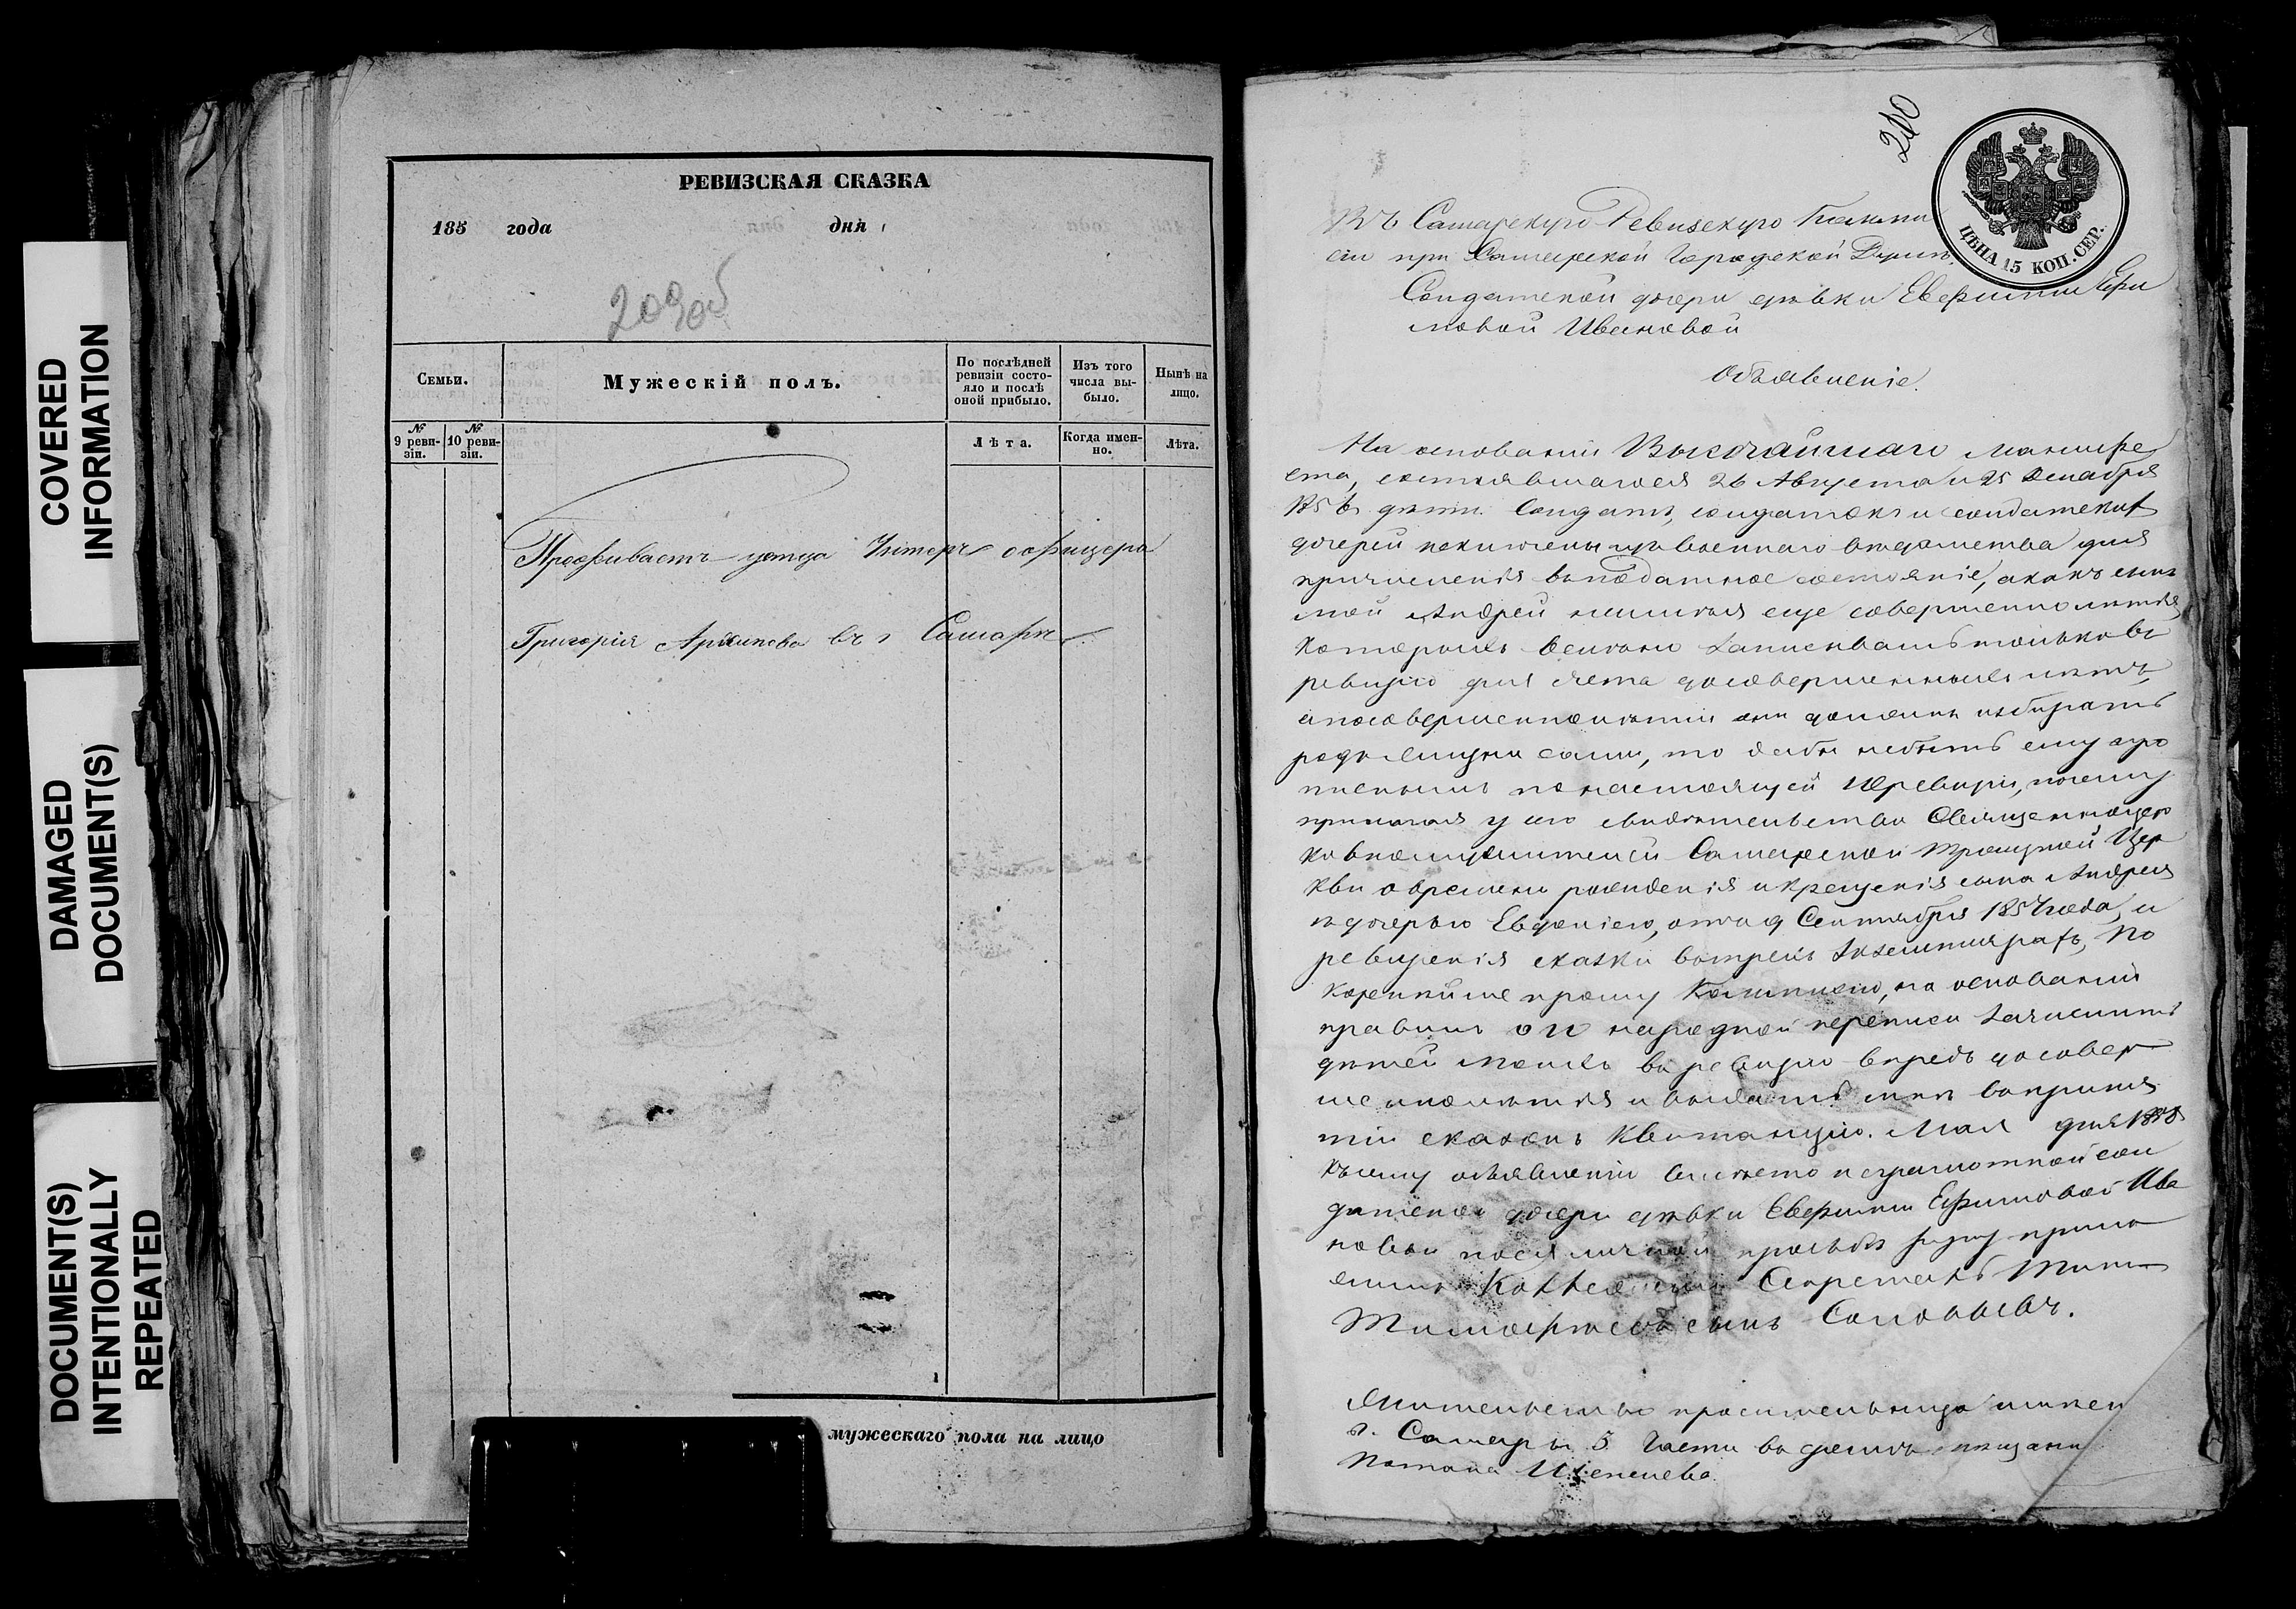 COVERED
INFORMATION
DAMAGED
DOCUMENT(S)
DOCUMENT(S)
INTENTIONALLY
REPEATED
РЕВИЗСКАЯ СКАЗКА
185 года дня
209об
Семьи.
Мужескій полъ.
По послѣдней ревизіи состояло и послѣ оной прибыло.
Изъ того числа выбыло.
Нынѣ на лицо.
№ 9 ревизіи.
№ 10 ревизіи.
Лѣта.
Когда именно.
Лѣта.
Проживаетъ у отца Унтеръ офицера
Григорія Архипова въ г Самарѣ
мужескаго пола на лицо
210
ЦѢНА 15 КОП. СЕР.
Въ Самарскую Ревизскую Коммис
сію при Самарской Городской Думѣ
Солдатской дочери дѣвки Евфиміи Ефи
мовой Ивановой
Объявленіе.
На основаніи Высочайшаго Манифе
ста, состоявшагося 26 Августа и 25 Декабря
1856 дѣти Солдатъ, солдатокъ и солдатскихъ
дочерей исключены изъ военнаго вѣдомства для
причисленія въ податное состояніе, а какъ сынъ
мой Андрей неимѣя еще совершеннолѣтія
которыхъ велѣно записывать только въ
ревизію для счета до совершенныхъ лѣтъ,
а по совершеннолѣтіи они должны избирать
родъ жизни сами, то дабы небыть ему про
писнымъ по настоящей 10 ревизіи, почему
прилагая у сего свидѣтельство Священноцер
ковнослужителей Самарской Троицкой Цер
кви о времени рожденія и крещенія сына Андрея
и дочерью Евдокіею, отъ 9 Сентября 1857 года, и
ревизскія сказки въ трехъ экземплярахъ, по
корнѣйше прошу Коммисію, на основаніи
правилъ о 10 народной переписи зачислить
дѣтей моихъ въ ревизію впредь до совер
шеннолѣтія и выдать мнѣ въ приня
тіи сказокъ квитанцію. Мая дня 1858
Къ сему объявленію вмѣсто неграмотной сол
датской дочери дѣвки Евфиміи Ефимовой Ива
новой по ея личной прозьбѣ руку прило
жилъ Секретарь
сынъ Соловьевъ.
Жительство просительница имѣет
г. Самары 3 Части въ домѣ мещани